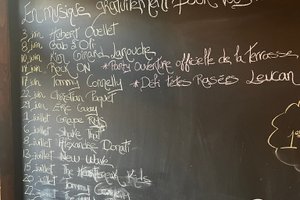 En musique gratuitement pour vous
3 juin Hubert Ouellet
8 juin Gab & Oli
10 juin Kim Girard Lamouche
15 juin Rock On *Party ouverture officielle de la terrasse
17 juin Tommy Connelly *Défi têtes Rasées Leucan
22 juin Christian Paquet
29 juin Eric
1 juillet Groupe
6 juillet Shake That
8 juillet Alexandre Donati
13 juillet New Wave
15 juillet The Heartbreak Kids
20 juillet Tommy
22
1